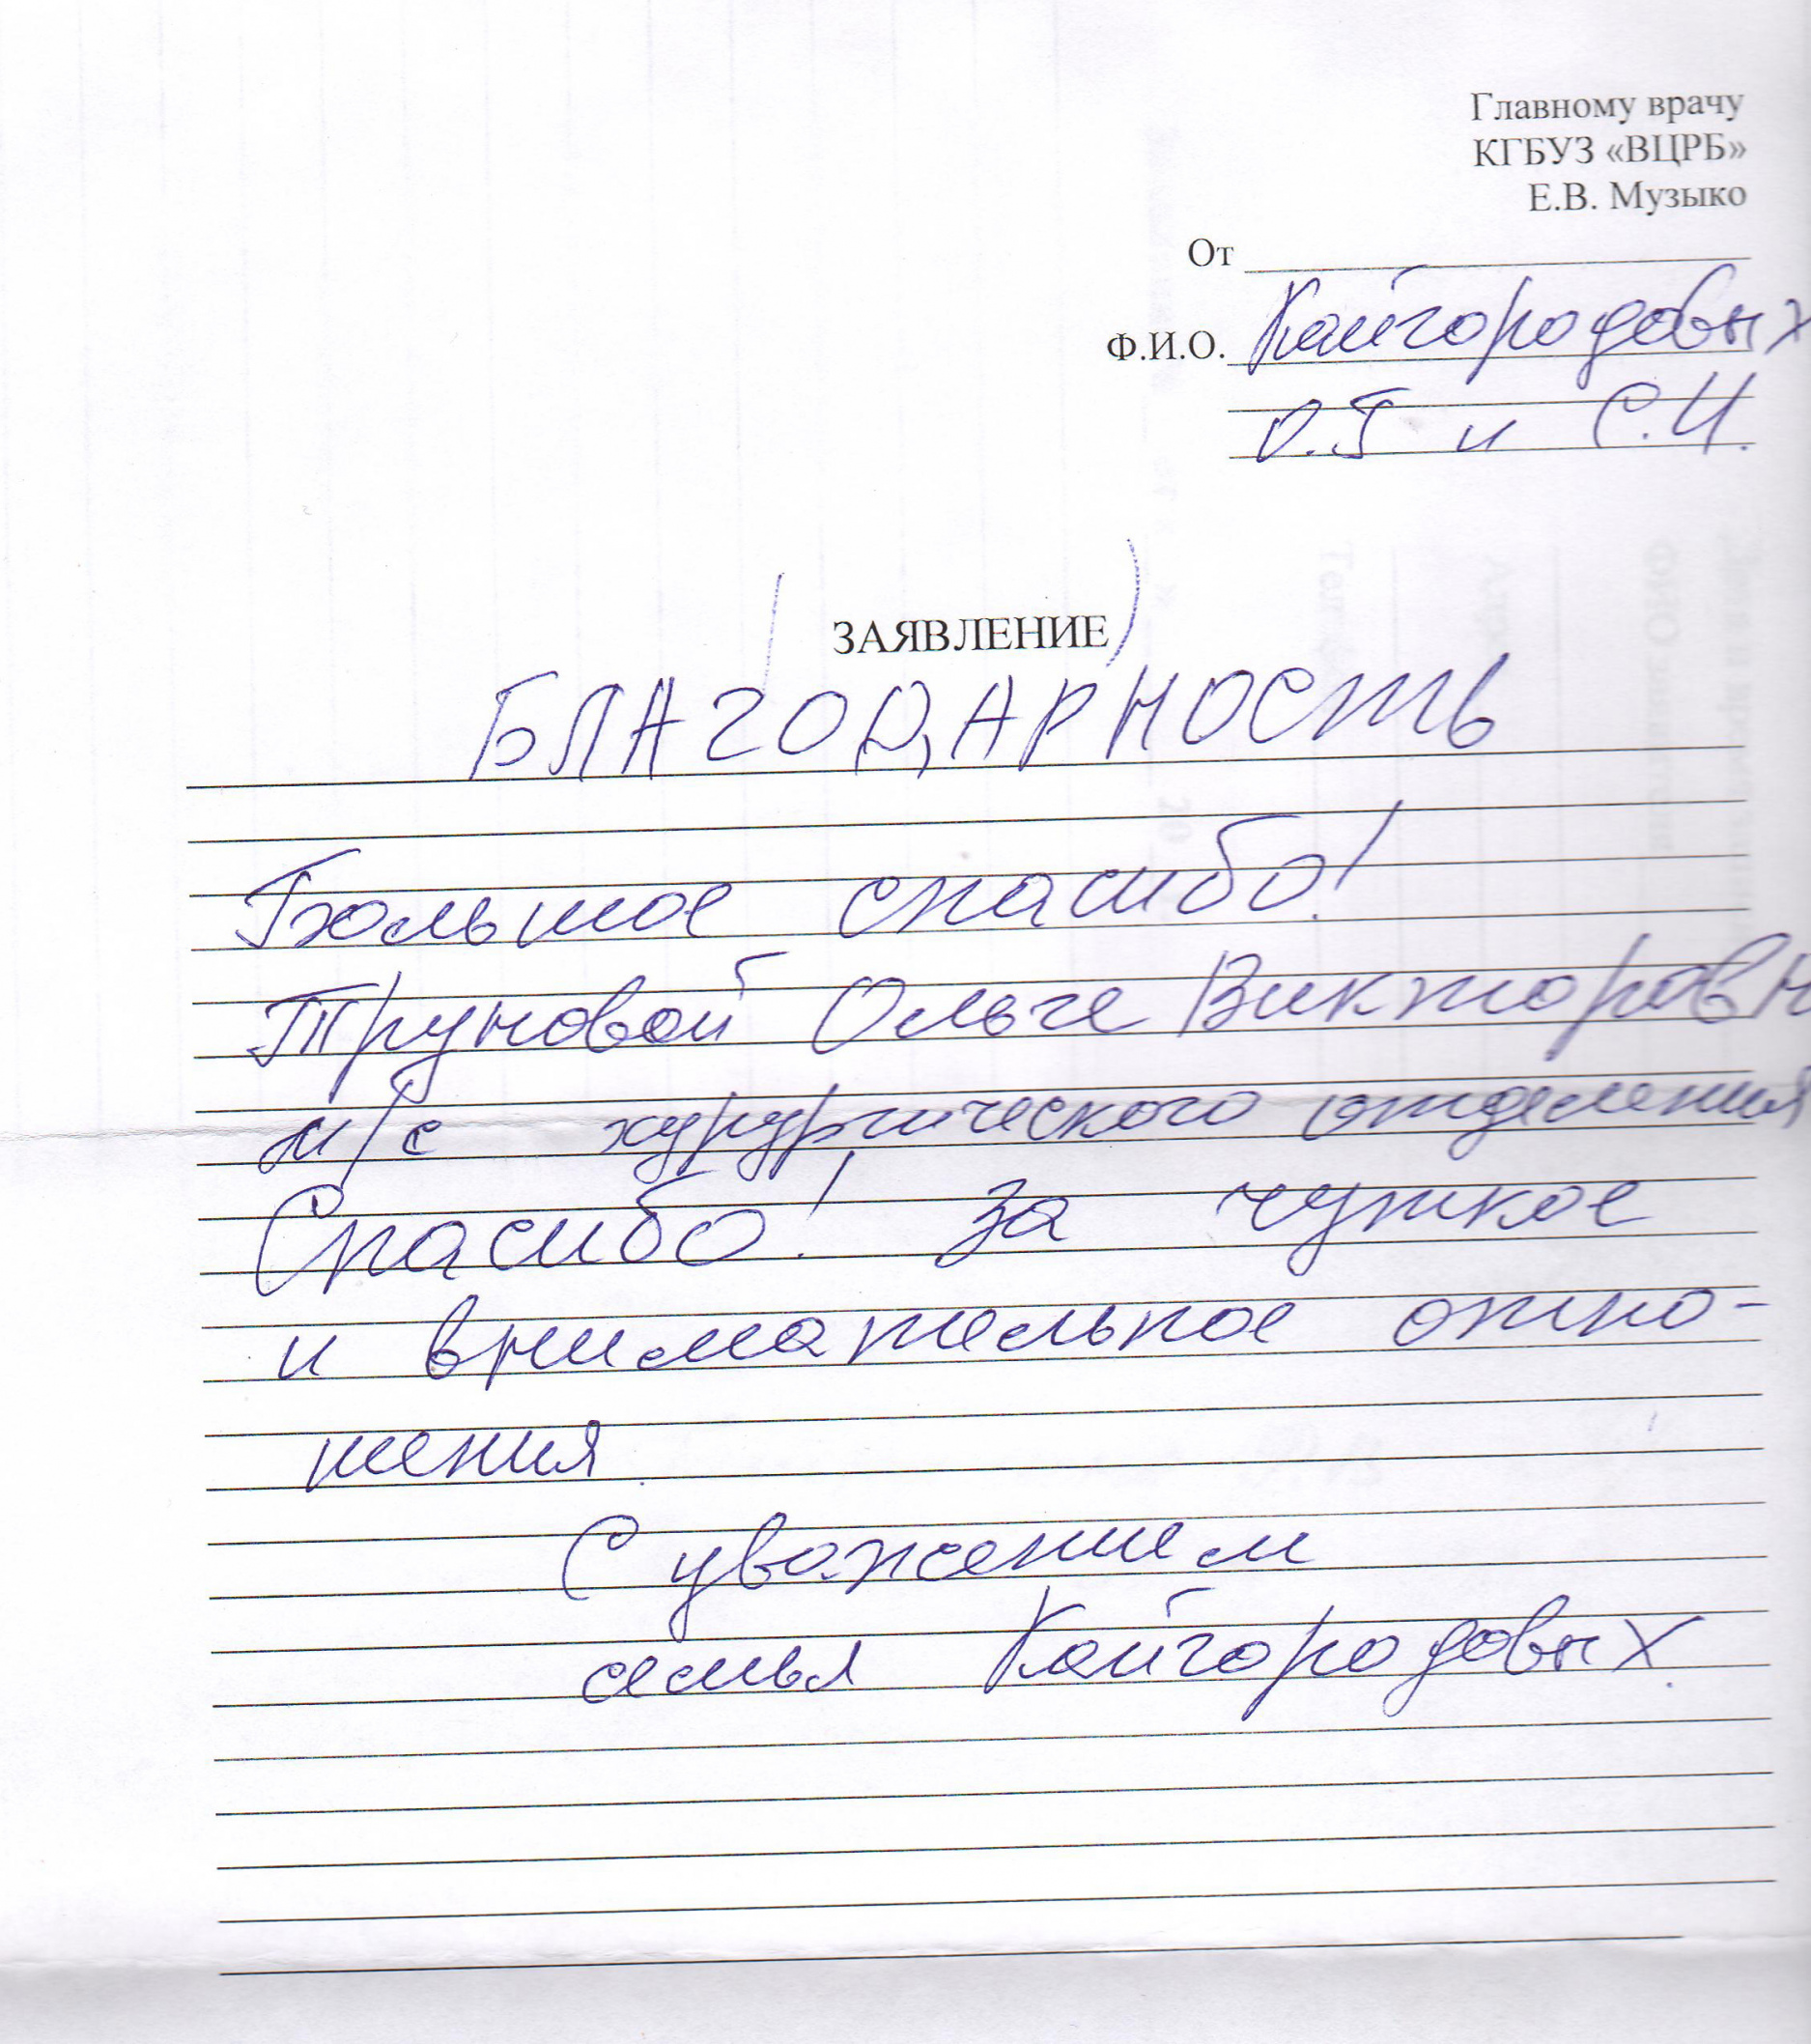 Главному врачу
КГБУЗ «ВЦРБ»
Е.В. Музыко
От
Ф.И.О. Кайгородовых
О.Г и С.И.
ЗАЯВЛЕНИЕ
БЛАГОДАРНОСТЬ
Большое спасибо!
Труновой Ольге Викторовн
м/с хирургического отделения
Спасибо! за чуткое
и внимательное отно-
шения.
С уважением
семья Кайгородовых.